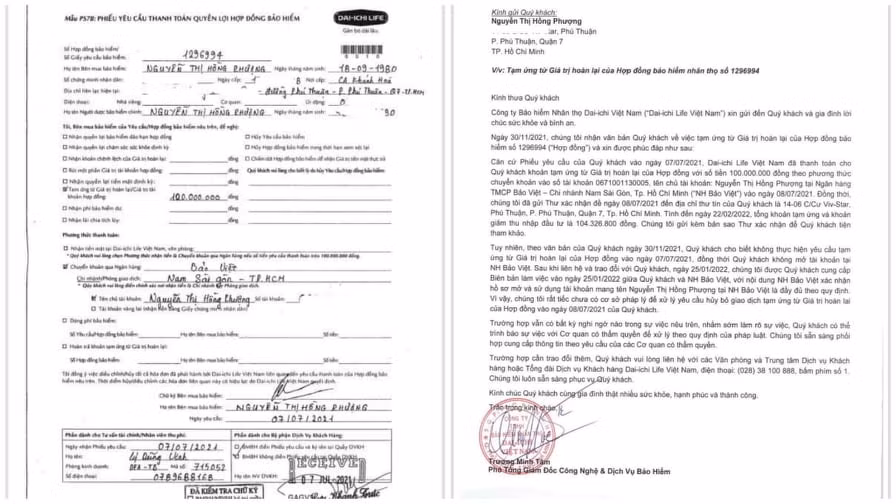 Mẫu PS7B: PHIẾU YÊU CẦU THANH TOÁN QUYỀN LỢI HỢP ĐỒNG BẢO HIỂM
DAI-ICHI LIFE
Gắn bó dài lâu.
Số Hợp đồng bảo hiểm/
Số Giấy yêu cầu bảo hiểm: 1296994
Họ tên Bên mua bảo hiểm: NGUYỄN THỊ HỒNG PHƯỢNG Ngày tháng năm sinh: 18-09-1980
Số chứng minh nhân dân: Ngày cấp: Nơi cấp: CA Khánh Hoà
Địa chỉ liên lạc hiện tại: đường Phú Thuận - P. Phú Thuận - Q7 - T.P. HCM
Điện thoại: Nhà riêng: Cơ quan: Di động: 0
Họ tên Người được bảo hiểm chính: NGUYỄN THỊ HỒNG PHƯỢNG Ngày tháng năm sinh: 80
Tôi, Bên mua bảo hiểm của Yêu cầu/Hợp đồng bảo hiểm nêu trên, đề nghị:
Nhận quyền lợi bảo hiểm đáo hạn hợp đồng
Hủy Yêu cầu bảo hiểm
Nhận quyền lợi chăm sóc sức khỏe định kỳ
Hủy Hợp đồng bảo hiểm trong thời hạn xem xét lại
Nhận khoản chênh lệch của Giá trị hoàn lại: đồng
Chấm dứt Hợp đồng bảo hiểm để nhận Giá trị tiền mặt thực trả
Rút một phần Giá trị tài khoản hợp đồng: đồng
Quý khách vui lòng cho biết lý do hủy Yêu cầu/Hợp đồng bảo hiểm:
Nhận quyền lợi tiền mặt định kỳ: đồng
Tạm ứng từ Giá trị hoàn lại/Giá trị tài khoản hợp đồng: 100.000.000 đồng
Nhận phí bảo hiểm dư: đồng
Nhận lãi chia tích lũy: đồng
Phương thức thanh toán:
Nhận tiền mặt tại Dai-ichi Life Việt Nam, văn phòng:
Chuyển khoản qua Ngân hàng Bảo Việt
Chi nhánh/Phòng giao dịch: Nam Sài Gòn - TP.HCM
Tên chủ tài khoản: Nguyễn Thị Hồng Phượng Số tài khoản:
Đóng phí bảo hiểm
Số Yêu cầu/Hợp đồng bảo hiểm: Họ tên Bên mua bảo hiểm: Số tiền:
Hoàn trả khoản tạm ứng từ Giá trị hoàn lại:
Số Hợp đồng bảo hiểm: Họ tên Bên mua bảo hiểm: Số tiền:
Chữ ký Bên mua bảo hiểm:
Họ tên Bên mua bảo hiểm: NGUYỄN THỊ HỒNG PHƯỢNG
Ngày yêu cầu: 07/07/2021
Phần dành cho Tư vấn tài chính/Nhân viên thu phí:
Phần dành cho Bộ phận Dịch vụ Khách hàng:
Ngày nhận Phiếu yêu cầu: 07/07/2021
Họ tên: Lý Dũng Vinh
Phòng kinh doanh: Mã số: 715052
Số điện thoại: 0789688168
Họ tên NV DVKH:
RECEIVED
07 JUL 2021
ĐÃ KIỂM TRA CHỮ KÝ
Kính gửi Quý khách:
Nguyễn Thị Hồng Phượng
Star, Phú Thuận
P. Phú Thuận, Quận 7
TP. Hồ Chí Minh
V/v: Tạm ứng từ Giá trị hoàn lại của Hợp đồng bảo hiểm nhân thọ số 1296994
Kính thưa Quý khách
Công ty Bảo hiểm Nhân thọ Dai-ichi Việt Nam (“Dai-ichi Life Việt Nam”) xin gửi đến Quý khách và gia đình lời
chúc sức khỏe và bình an.
Ngày 30/11/2021, chúng tôi nhận văn bản Quý khách về việc tạm ứng từ Giá trị hoàn lại của Hợp đồng bảo
hiểm số 1296994 (“Hợp đồng”) và xin được phúc đáp như sau:
Căn cứ Phiếu yêu cầu của Quý khách vào ngày 07/07/2021, Dai-ichi Life Việt Nam đã thanh toán cho
Quý khách khoản tạm ứng từ Giá trị hoàn lại của Hợp đồng với số tiền 100.000.000 đồng theo phương thức
chuyển khoản vào số tài khoản 0671001130005, tên chủ tài khoản: Nguyễn Thị Hồng Phượng tại Ngân hàng
TMCP Bảo Việt – Chi nhánh Nam Sài Gòn, Tp. Hồ Chí Minh (“NH Bảo Việt”) vào ngày 08/07/2021. Đồng thời,
chúng tôi đã gửi Thư xác nhận đề ngày 08/07/2021 đến địa chỉ thư tín của Quý khách là 14-06 C/Cư Viv-Star,
Phú Thuận, P. Phú Thuận, Quận 7, Tp. Hồ Chí Minh. Tính đến ngày 22/02/2022, tổng khoản tạm ứng và khoản
giảm thu nhập đầu tư là 104.326.800 đồng. Chúng tôi gửi kèm bản sao Thư xác nhận để Quý khách tiện
tham khảo.
Tuy nhiên, theo văn bản của Quý khách ngày 30/11/2021, Quý khách cho biết không thực hiện yêu cầu tạm
ứng từ Giá trị hoàn lại của Hợp đồng vào ngày 07/07/2021, đồng thời Quý khách không mở tài khoản tại
NH Bảo Việt. Sau khi liên hệ và trao đổi với Quý khách, ngày 25/01/2022, chúng tôi được Quý khách cung cấp
Biên bản làm việc vào ngày 25/01/2022 giữa Quý khách và NH Bảo Việt, với nội dung NH Bảo Việt xác nhận
hồ sơ mở và sử dụng tài khoản mang tên Nguyễn Thị Hồng Phượng tại NH Bảo Việt là đầy đủ theo quy định.
Vì vậy, chúng tôi rất tiếc chưa có cơ sở pháp lý để xử lý yêu cầu hủy bỏ giao dịch tạm ứng từ Giá trị hoàn lại
của Hợp đồng vào ngày 08/07/2021 của Quý khách.
Trường hợp vẫn có bất kỳ nghi ngờ nào trong sự việc nêu trên, nhằm sớm làm rõ sự việc, Quý khách có thể
trình báo sự việc với Cơ quan có thẩm quyền để xử lý theo quy định của pháp luật. Chúng tôi sẵn sàng phối
hợp cung cấp thông tin theo yêu cầu của các Cơ quan có thẩm quyền.
Trường hợp cần trao đổi thêm, Quý khách vui lòng liên hệ với các Văn phòng và Trung tâm Dịch vụ Khách
hàng hoặc Tổng đài Dịch vụ Khách hàng Dai-ichi Life Việt Nam, điện thoại: (028) 38 100 888, bấm phím số 1.
Chúng tôi luôn sẵn sàng phục vụ Quý khách.
Kính chúc Quý khách cùng gia đình thật nhiều sức khỏe, hạnh phúc và thành công.
Trân trọng kính chào,
Trương Minh Tâm
Phó Tổng Giám Đốc Công Nghệ & Dịch Vụ Bảo Hiểm